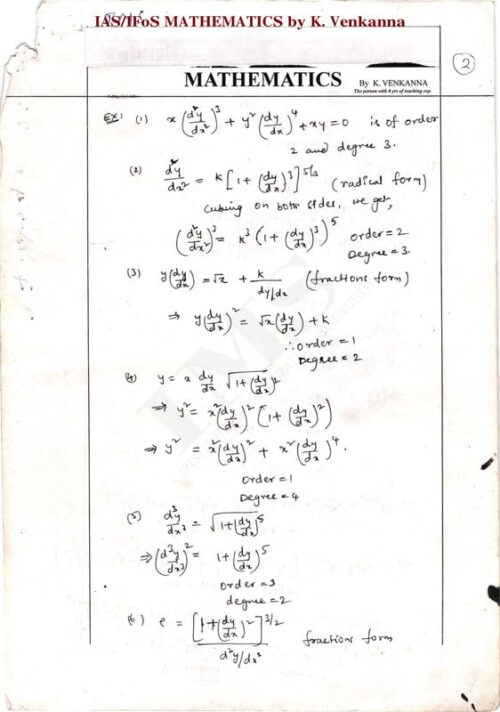 IAS/IFoS MATHEMATICS by K. Venkanna
2
MATHEMATICS By K. VENKANNA
The person with 8 yrs of teaching exp.
Ex: (1) x(d²y/dx²)³ + y²(dy/dx)⁴ + xy = 0 is of order
2 and degree 3.
(2) d²y/dx² = k[1+(dy/dx)³]^5/3 (radical form)
cubing on both sides, we get,
(d²y/dx²)³ = k³(1+(dy/dx)³)⁵ order=2
Degree=3.
(3) y(dy/dx) = √x + k/(dy/dx) (fractions form)
⇒ y(dy/dx)² = √x(dy/dx) + k
∴ order=1
Degree=2
(4) y = x dy/dx √(1+(dy/dx)²)
⇒ y² = x²(dy/dx)²(1+(dy/dx)²)
⇒ y² = x²(dy/dx)² + x²(dy/dx)⁴.
Order=1
Degree=4
(5) d³y/dx³ = √(1+(dy/dx)⁵)
⇒ (d³y/dx³)² = 1+(dy/dx)⁵
order=3
degree=2
(6) ρ = [1+(dy/dx)²]^3/2 / d²y/dx² fractions form